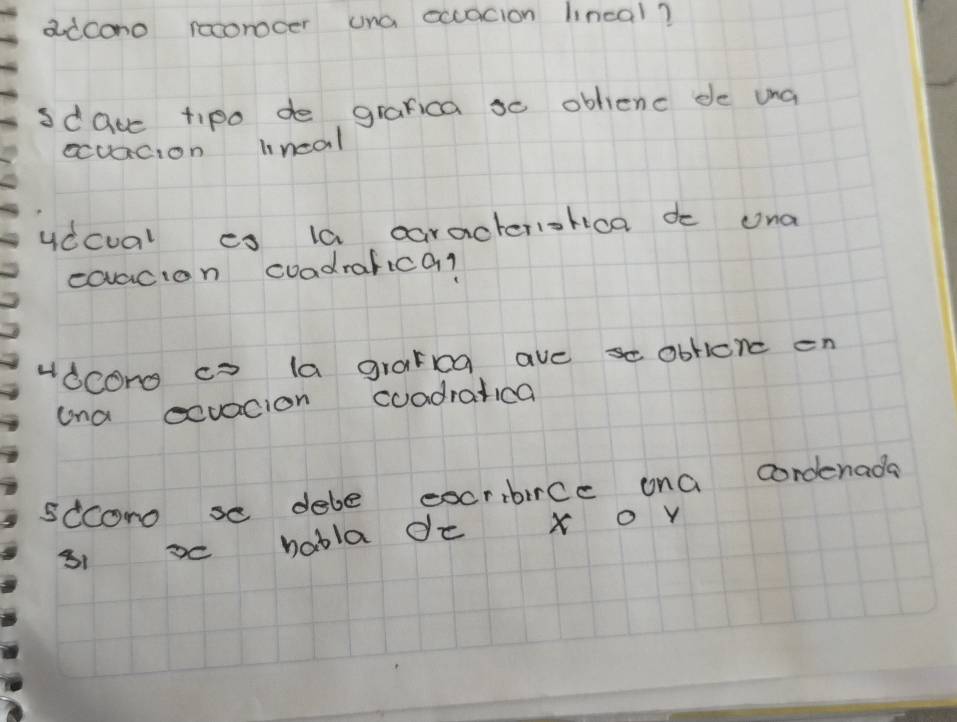 2¿como reconocer una ecuacion lineal?
3¿que tipo de grafica se obtiene de una
ecuacion lineal
4¿cual es la caracteristica de una
ecuacion cuadratica?
4¿como es la grafica que se obtiene en
una ecuacion cuadratica
5¿como se debe escribirce una cordenada
si se habla de x o y